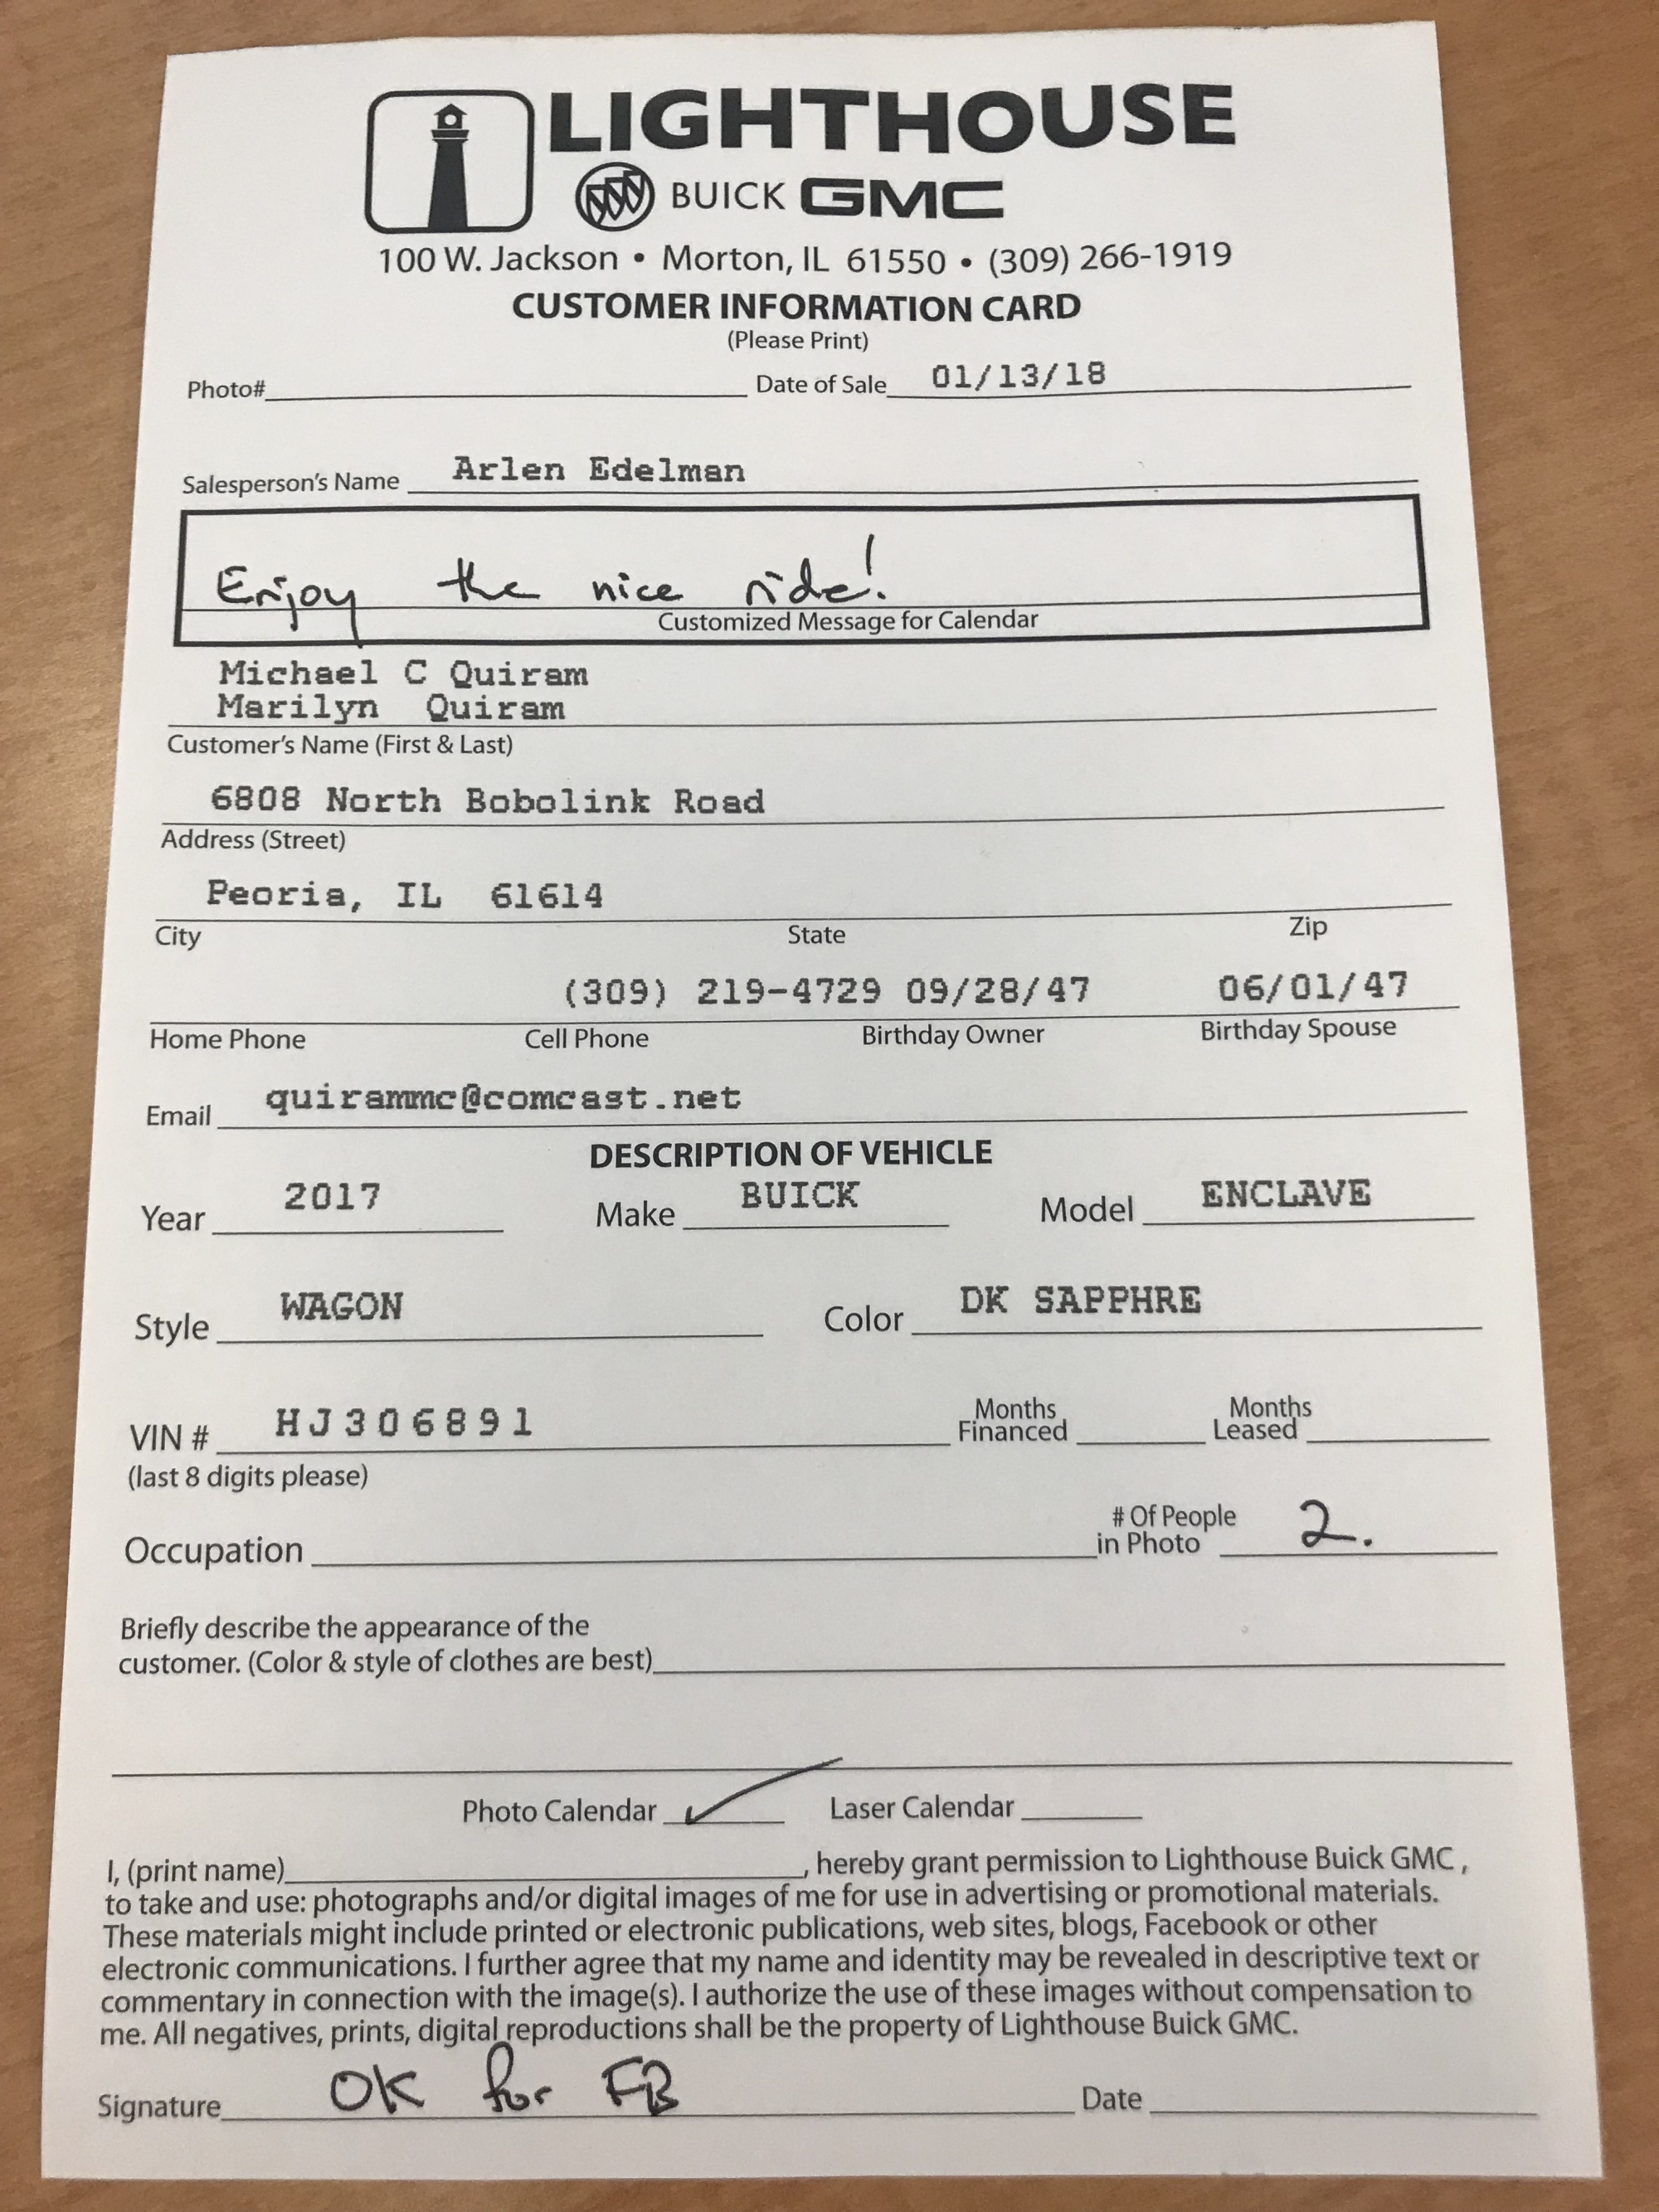 LIGHTHOUSE
BUICK GMC
100 W. Jackson • Morton, IL 61550 • (309) 266-1919
CUSTOMER INFORMATION CARD
(Please Print)
Photo# Date of Sale 01/13/18
Salesperson's Name Arlen Edelman
Enjoy the nice ride!
Customized Message for Calendar
Michael C Quiram
Marilyn Quiram
Customer's Name (First & Last)
6808 North Bobolink Road
Address (Street)
Peoria, IL 61614
City State Zip
(309) 219-4729 09/28/47 06/01/47
Home Phone Cell Phone Birthday Owner Birthday Spouse
Email quirammc@comcast.net
DESCRIPTION OF VEHICLE
Year 2017 Make BUICK Model ENCLAVE
Style WAGON Color DK SAPPHRE
VIN # HJ306891 Months Financed Months Leased
(last 8 digits please)
Occupation # Of People in Photo 2.
Briefly describe the appearance of the
customer. (Color & style of clothes are best)
Photo Calendar ✓ Laser Calendar
I, (print name), hereby grant permission to Lighthouse Buick GMC ,
to take and use: photographs and/or digital images of me for use in advertising or promotional materials.
These materials might include printed or electronic publications, web sites, blogs, Facebook or other
electronic communications. I further agree that my name and identity may be revealed in descriptive text or
commentary in connection with the image(s). I authorize the use of these images without compensation to
me. All negatives, prints, digital reproductions shall be the property of Lighthouse Buick GMC.
Signature OK for FB Date